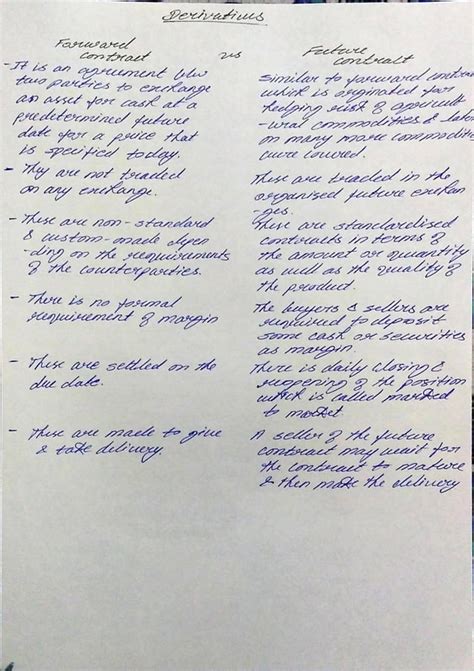 Derivatives
Forward contract vs Future contract
- It is an agreement b/w
two parties to exchange
an asset for cash at a
predetermined future
date for a price that
is specified today.
- They are not traded
on any exchange.
- These are non-standard
& custom-made depen
-ding on the requirements
of the counterparties.
- There is no formal
requirement of margin
- These are settled on the
due date.
- These are made to give
& take delivery.
Similar to forward contract
which is originated for
hedging risk of agricult
-ural commodities & later
on many more commodities
were covered.
These are traded in the
organised future exchan
-ges.
These are standardised
contracts in terms of
the amount or quantity
as well as the quality of
the product.
The buyers & sellers are
required to deposit
some cash or securities
as margin.
There is daily closing &
reopening of the position
which is called marked
to market
A seller of the future
contract may wait for
the contract to mature
& then make the delivery